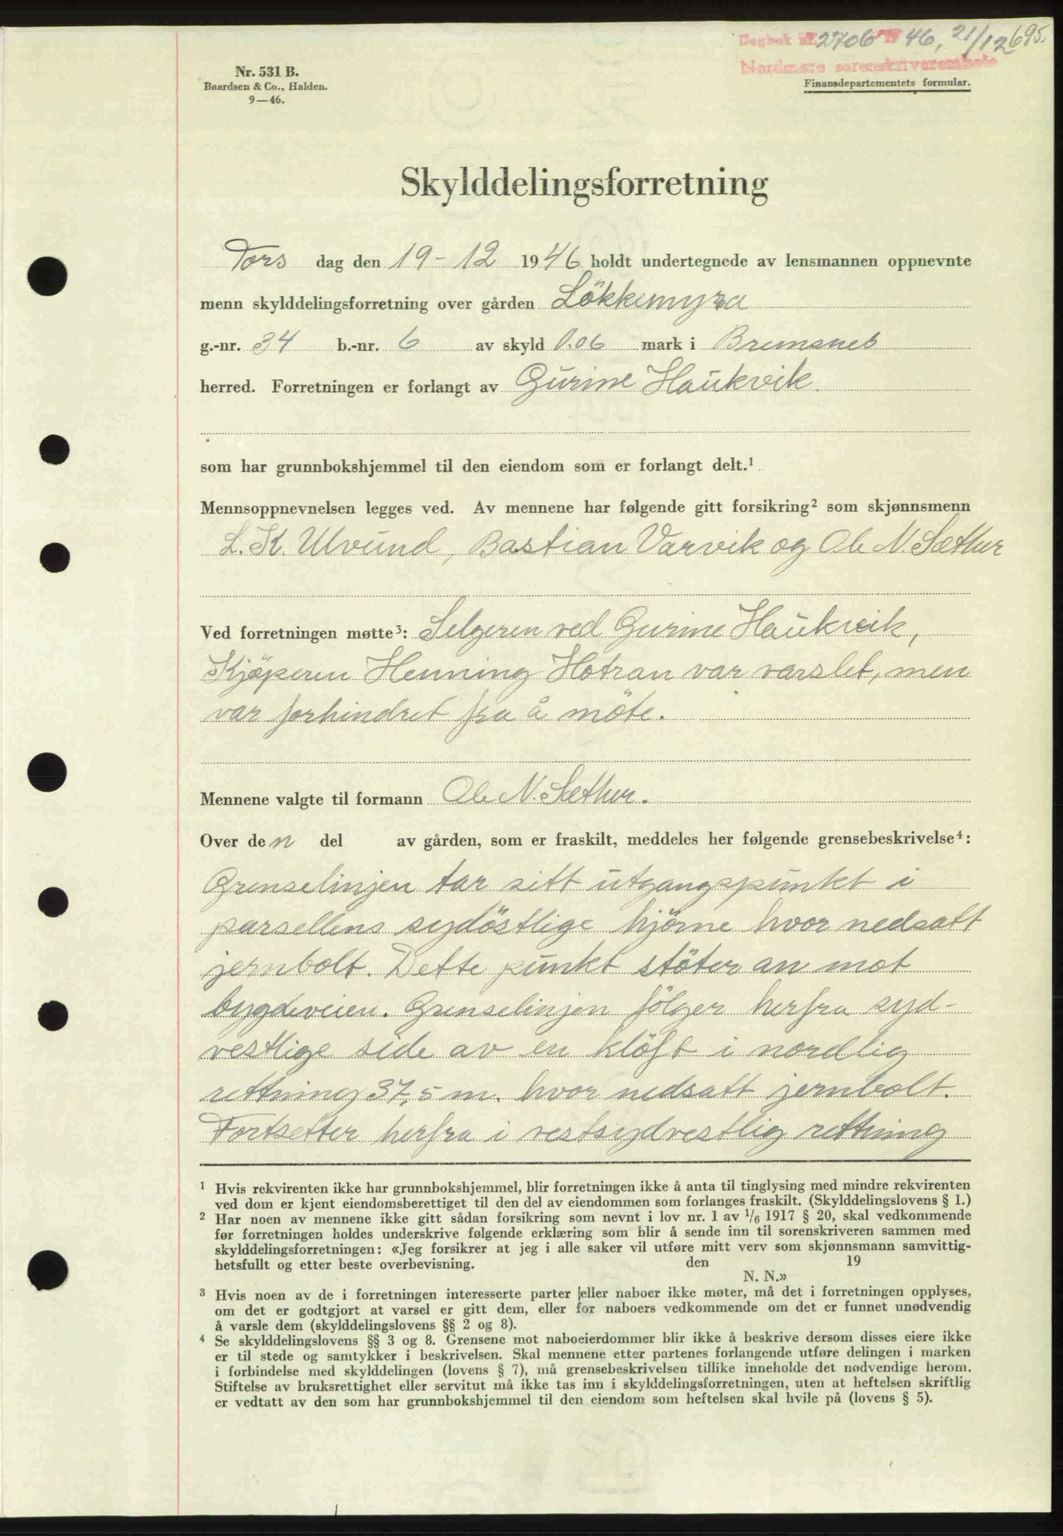 Dagbok nr. 2706 19 46, 21/12 695.
Nordmøre sorenskriverembete
Nr. 531 B.
Baardsen & Co., Halden.
9—46.
Finansdepartementets formular.
Skylddelingsforretning
Tors dag den 19-12 1946 holdt undertegnede av lensmannen oppnevnte
menn skylddelingsforretning over gården Lökkemyra
g.-nr. 34 b.-nr. 6 av skyld 0.06 mark i Bremsnes
herred. Forretningen er forlangt av Gurine Haukvik.
som har grunnbokshjemmel til den eiendom som er forlangt delt.¹
Mennsoppnevnelsen legges ved. Av mennene har følgende gitt forsikring² som skjønnsmenn
L. K. Ulvund, Bastian Varvik og Ole N. Sæther
Ved forretningen møtte³: Selgeren ved Gurine Haukvik,
Kjöperen Henning Hotran var varslet, men
var forhindret fra å möte.
Mennene valgte til formann Ole N. Sæther.
Over den del av gården, som er fraskilt, meddeles her følgende grensebeskrivelse⁴:
Grenselinjen tar sitt utgangspunkt i
parsellens sydöstlige hjörne hvor nedsatt
jernbolt. Dette punkt stöter an mot
bygdeveien. Grenselinjen fölger herfra syd-
vestlige side av en klöft i nordlig
rettning 37,5 m. hvor nedsatt jernbolt.
Fortsetter herfra i vestsydvestlig rettning
¹ Hvis rekvirenten ikke har grunnbokshjemmel, blir forretningen ikke å anta til tinglysing med mindre rekvirenten
ved dom er kjent eiendomsberettiget til den del av eiendommen som forlanges fraskilt. (Skylddelingslovens § 1.)
² Har noen av mennene ikke gitt sådan forsikring som nevnt i lov nr. 1 av 1/6 1917 § 20, skal vedkommende
før forretningen holdes underskrive følgende erklæring som blir å sende inn til sorenskriveren sammen med
skylddelingsforretningen: «Jeg forsikrer at jeg i alle saker vil utføre mitt verv som skjønnsmann samvittig-
hetsfullt og etter beste overbevisning. den 19
N. N.»
³ Hvis noen av de i forretningen interesserte parter eller naboer ikke møter, må det i forretningen opplyses,
om det er godtgjort at varsel er gitt dem, eller for naboers vedkommende om det er funnet unødvendig
å varsle dem (skylddelingslovens §§ 2 og 8).
⁴ Se skylddelingslovens §§ 3 og 8. Grensene mot naboeierdommer blir ikke å beskrive dersom disses eiere ikke
er til stede og samtykker i beskrivelsen. Skal mennene etter partenes forlangende utføre delingen i marken
i forbindelse med skylddelingen (lovens § 7), må grensebeskrivelsen tillike inneholde det nødvendige herom.
Stiftelse av bruksrettighet eller servitut må ikke tas inn i skylddelingsforretningen, uten at heftelsen skriftlig
er vedtatt av den som har grunnbokshjemmel til den eiendom som heftelsen skal hvile på (lovens § 5).